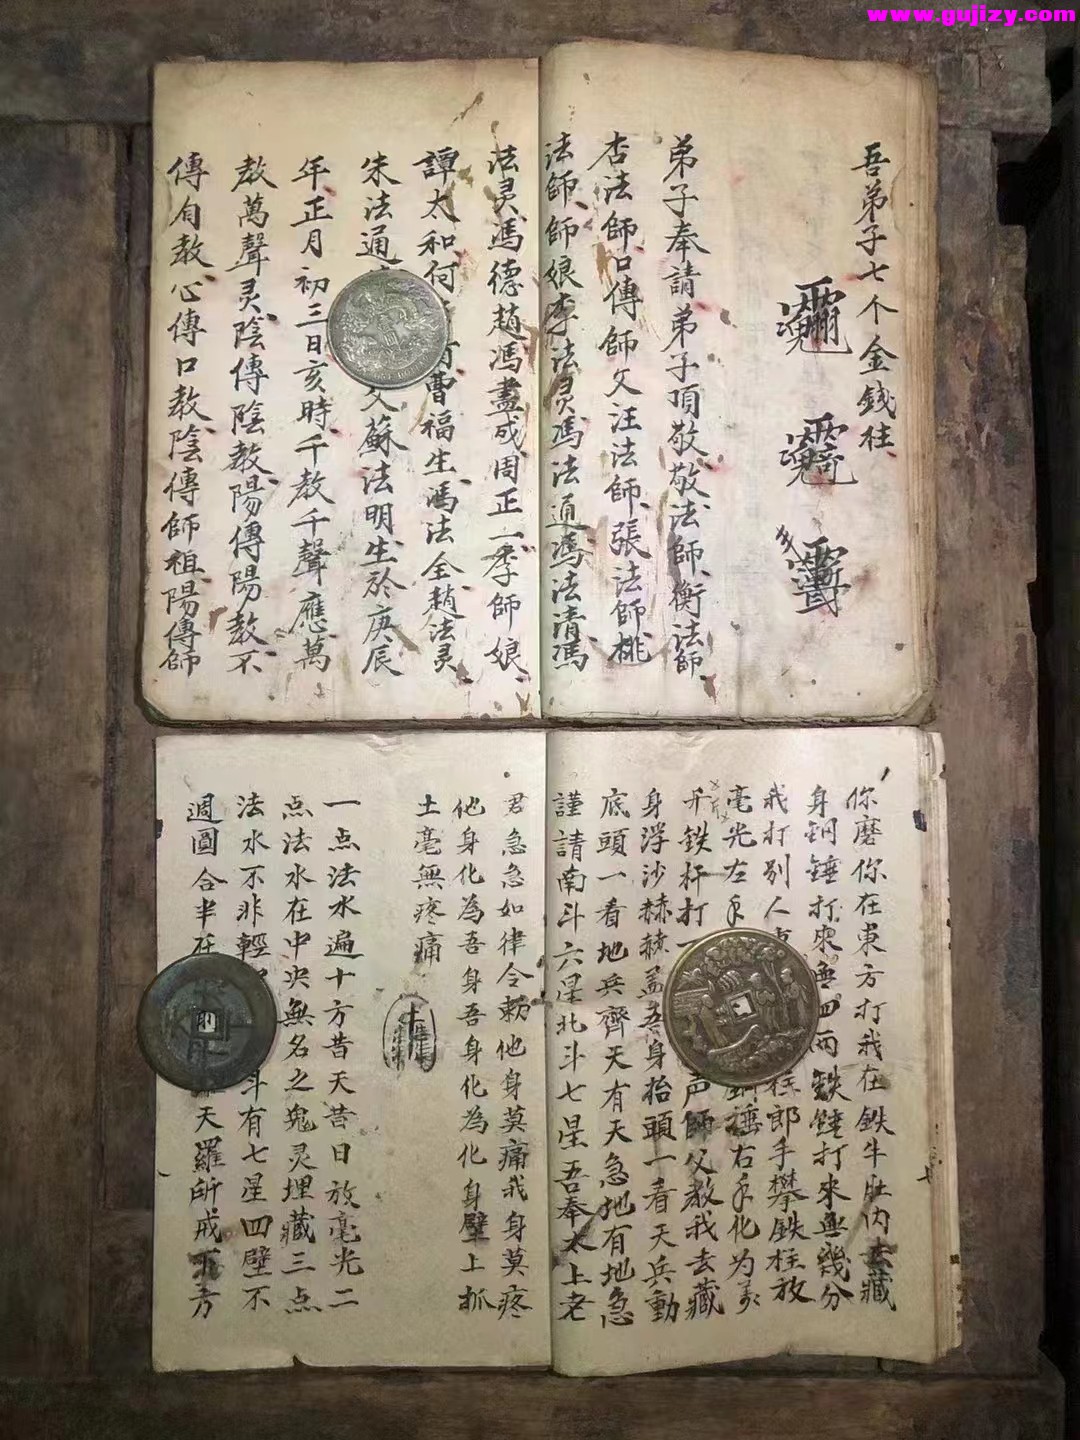 www.gujizy.com
吾弟子七个金錢柱
弟子奉請弟子頂敬敬法師衡法師
杏法師口傳師父汪法師張法師桃
法師師娘李法灵馮法通馮法清馮
法灵馮德趙馮盡成周正一李師娘
譚太和何 曹福生馮法全趙法灵
朱法通 父蘇法明生於庚辰
年正月初三日亥時千教千聲應萬
教萬聲灵陰傳陰教陽傳陽教不
傳自教心傳口教陰傳師祖陽傳師
你磨你在東方打我在鉄牛肚内去藏
身銅錘打來無四兩鉄錘打來無幾分
我打别人 柱郎手攀鉄柱放
毫光左手 錘右手化为
斤鉄杆打一 声師父教我去藏
身浮沙赫赫盖吾身抬頭一看天兵動
底頭一看地兵齊天有天急地有地急
謹請南斗六星北斗七星吾奉太上老
君急急如律令勅他身莫痛我身莫疼
他身化為吾身吾身化為化身壁上抓
土毫無疼痛
一点法水遍十方昔天昔日放毫光二
点法水在中央無名之鬼灵埋藏三点
法水不非輕 斗有七星四壁不
週圓合半在 天羅所戒下方